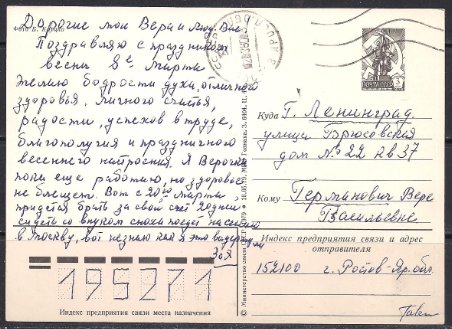 Дорогие мои Вера и
Поздравляю с праздником
весны 8е Марта
Желаю бодрости духа, отличного
здоровья, личного счастья,
радости, успехов в труде,
благополучия и праздничного
весеннего настроения. Я Верочка
пока еще работаю, но здоровье
не блещет. Вот с 20го марта
придется брать за свой счет
сидеть со внуком сноха поедет на сессию
в Москву, вот незнаю как я это выдержу
Зоя
195271
Индекс предприятия связи места назначения
3
Куда Г. Ленинград
улица Брюсовская
дом №22 кв 37
Кому Германович Вере
Васильевне
Индекс предприятия связи и адрес
отправителя
152100 г. Ростов-Яр. обл.